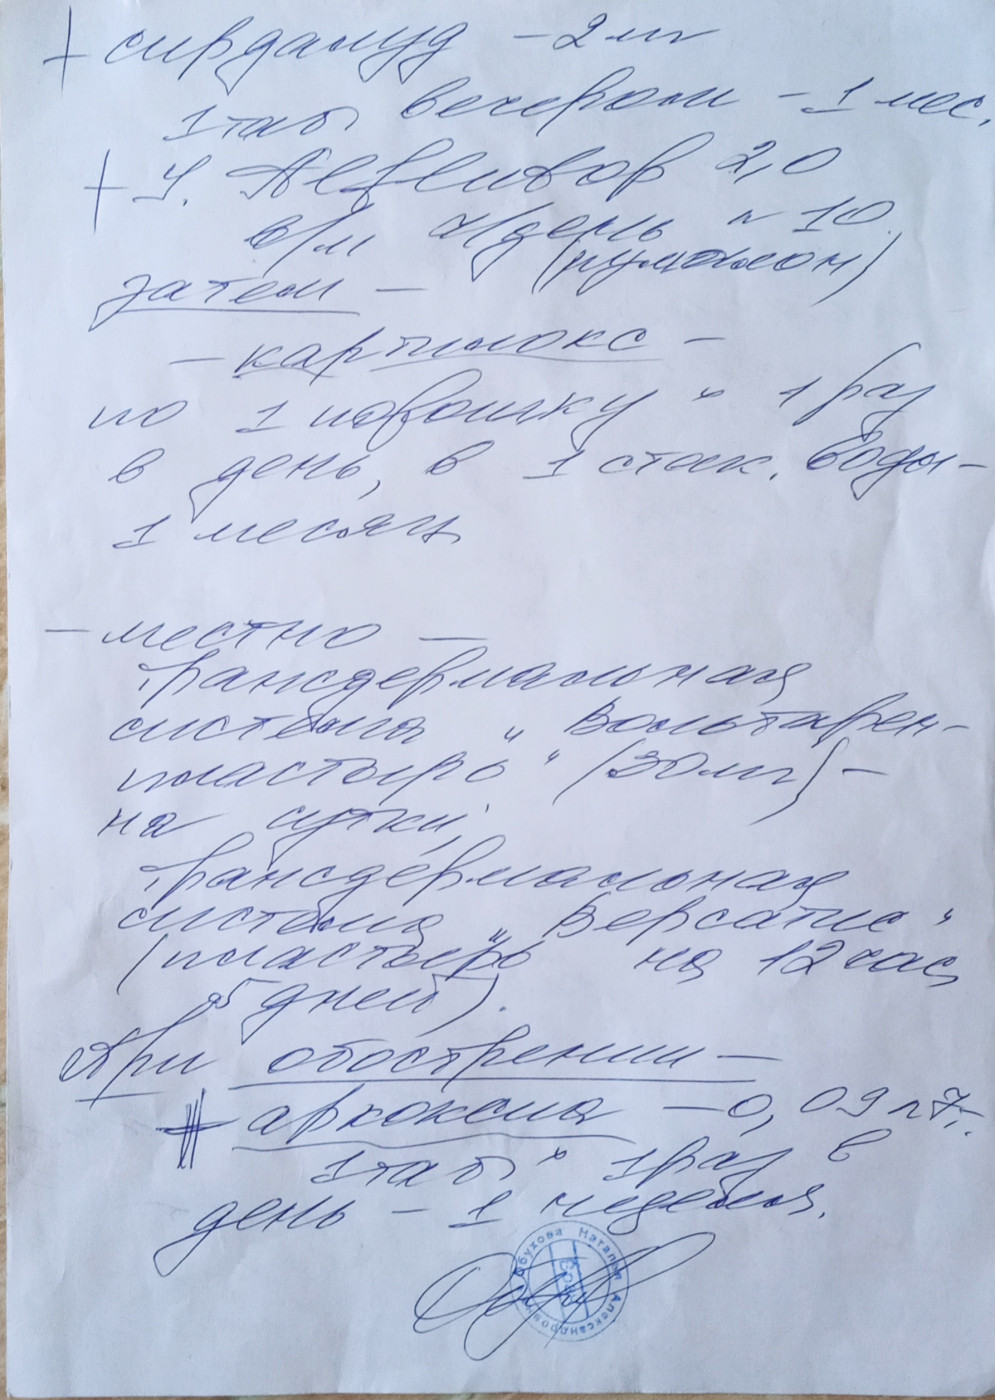 + сирдалуд - 2 мг
1 таб. вечером - 1 мес.
+ У. Алфлутоп 2,0
в/м ч/день n 10.
затем - (румалон)
- картилокс -
по 1 порошку × 1 раз
в день, в 1 стак. воды -
1 месяц
- местно -
трансдермальная
система "Вольтарен-
пластырь" (30 мг) -
на сутки;
трансдермальная
система "Версатис"
(пластырь на 12 час
5 дней).
При обострении -
+ аркоксиа - 0,09 n 7,
1 таб × 1 раз в
день - 1 неделя.
Обухова Наталья Александровна